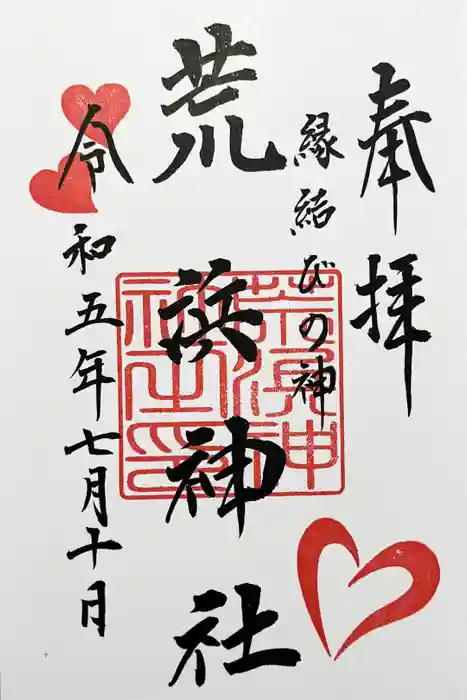 奉拝
縁結びの神
荒浜神社
令和五年七月十日
荒浜神社之印